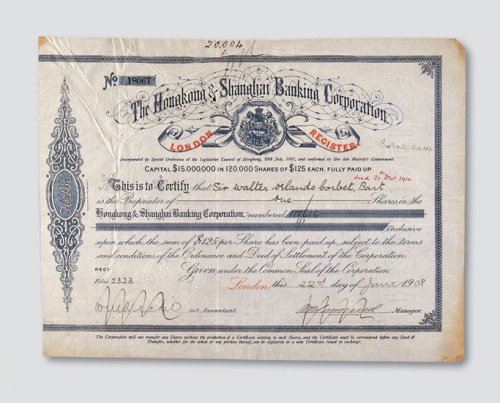 20,004
No 18067
The Hongkong & Shanghai Banking Corporation.
LONDON REGISTER.
Incorporated by Special Ordinance of the Legislative Council of Hongkong,
CAPITAL $15,000,000 IN 120,000 SHARES OF $125 EACH, FULLY PAID UP
died 20 Dec 1910
This is to Certify that Sir Walter Orlando Corbet, Bart
is the Proprietor of One Shares in the
Hongkong & Shanghai Banking Corporation, numbered
inclusive
upon which the sum of $125 per Share has been paid up, subject to the terms
and conditions of the Ordinance and Deed of Settlement of the Corporation.
REGD
Folio 2323
Given under the Common Seal of the Corporation.
London, this 22nd day of June 1908
Accountant
Manager
The Corporation will not transfer any Shares without the production of a Certificate relating to such Shares, and the Certificate must be surrendered before any Deed of
Transfer, whether for the whole or any portion thereof, can be registered or a new Certificate issued in exchange.